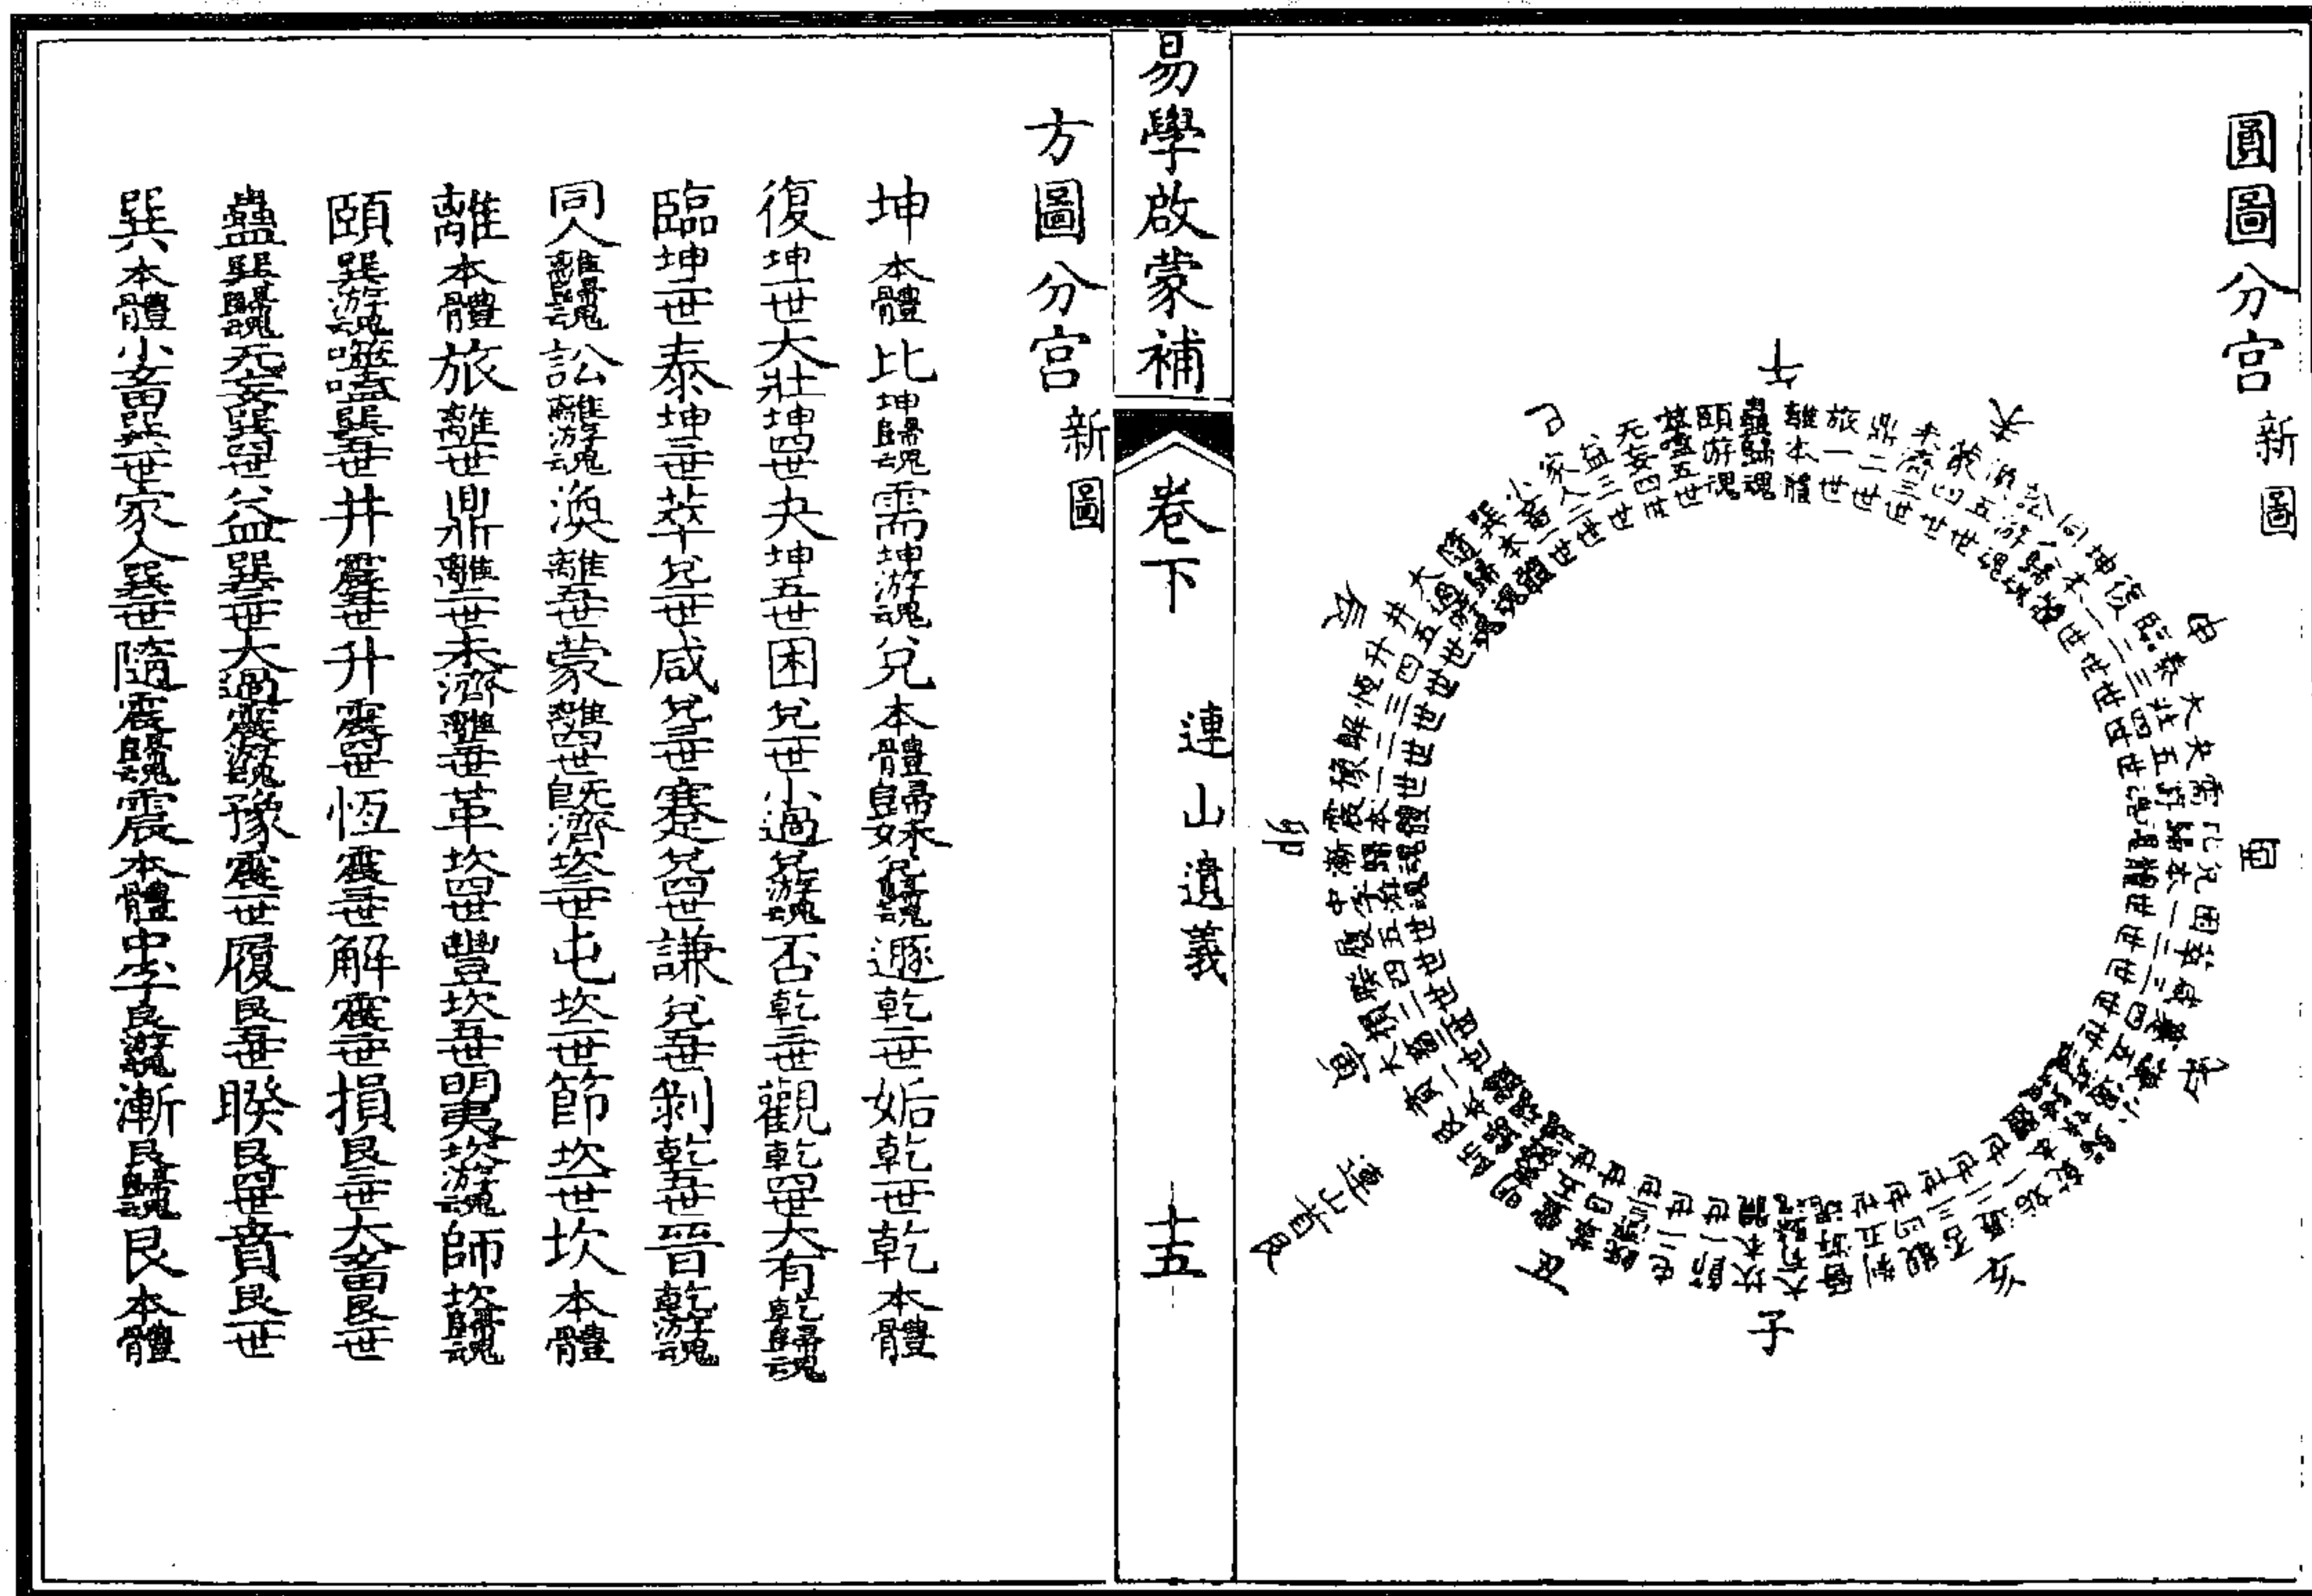 圓圖分宮 新圖
午
未
申
酉
戌
亥
子
丑
寅
卯
辰
巳
連山首艮
離本體
旅一世
鼎二世
未濟三世
蒙四世
渙五世
訟游魂
同人歸魂
坤本體
復一世
臨二世
泰三世
大壯四世
夬五世
需游魂
比歸魂
兌本體
困一世
萃二世
咸三世
蹇四世
謙五世
小過游魂
歸妹歸魂
乾本體
姤一世
遯二世
否三世
觀四世
剝五世
晉游魂
大有歸魂
坎本體
節一世
屯二世
既濟三世
革四世
豐五世
明夷游魂
師歸魂
艮本體
賁一世
大畜二世
損三世
睽四世
履五世
中孚游魂
漸歸魂
震本體
豫一世
解二世
恆三世
升四世
井五世
大過游魂
隨歸魂
巽本體
小畜一世
家人二世
益三世
无妄四世
噬嗑五世
頤游魂
蠱歸魂
易學啟蒙補 卷下 連山遺義 十五
方圖分宮 新圖
坤本體比坤歸魂需坤游魂兌本體歸妹兌歸魂遯乾二世姤乾一世乾本體
復坤一世大壯坤四世夬坤五世困兌一世小過兌游魂否乾三世觀乾四世大有乾歸魂
臨坤二世泰坤三世萃兌二世咸兌三世蹇兌四世謙兌五世剝乾五世晉乾游魂
同人離歸魂訟離游魂渙離五世蒙離四世既濟坎三世屯坎二世節坎一世坎本體
離本體旅離一世鼎離二世未濟離三世革坎四世豐坎五世明夷坎游魂師坎歸魂
頤巽游魂噬嗑巽五世井震五世升震四世恆震三世解震二世損艮三世大畜艮二世
蠱巽歸魂无妄巽四世益巽三世大過震游魂豫震一世履艮五世睽艮四世賁艮一世
巽本體小畜巽一世家人巽二世隨震歸魂震本體中孚艮游魂漸艮歸魂艮本體